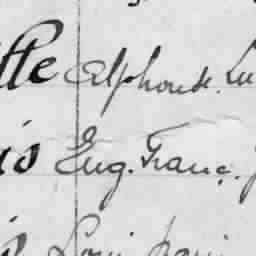 tte Alphonse. Lu
is Eug. Franç. J
Loui